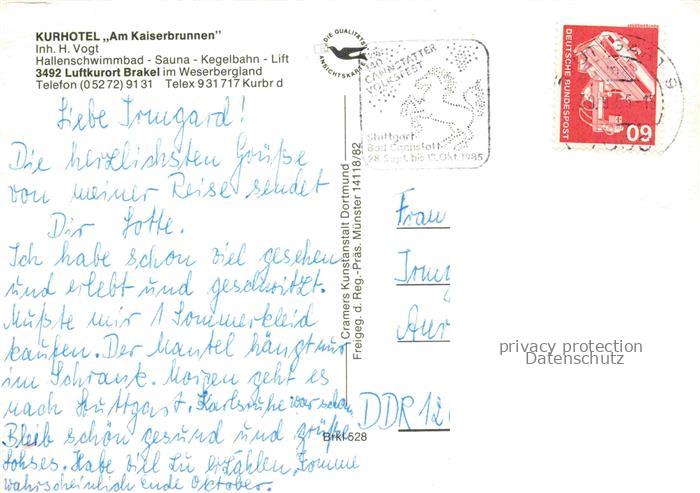 KURHOTEL „Am Kaiserbrunnen"
Inh. H. Vogt
Hallenschwimmbad - Sauna - Kegelbahn - Lift
3492 Luftkurort Brakel im Weserbergland
Telefon (05272) 9131 Telex 931717 Kurbr d
Liebe Irmgard!
Die herzlichsten Grüße
von meiner Reise sendet
Dir Lotte.
Ich habe schon viel gesehen
und erlebt und geschwitzt.
Mußte mir 1 Sommerkleid
kaufen. Der Mantel hängt nur
im Schrank. Morgen geht es
nach Stuttgart. Karlsruhe war schon
Bleib schön gesund und grüße
Habe viel zu erzählen, komme
wahrscheinlich Ende Oktober.
DIE QUALITÄTS
ANSICHTSKARTE
Cramers Kunstanstalt Dortmund
Freigeg. d. Reg.-Präs. Münster 14118/82
Brkl 528
CANNSTATTER
VOLKSFEST
Stuttgart-
Bad Cannstatt
28. Sept. bis 13. Okt. 1985
DEUTSCHE BUNDESPOST
60
Frau
Irmg
DDR 12
privacy protection
Datenschutz